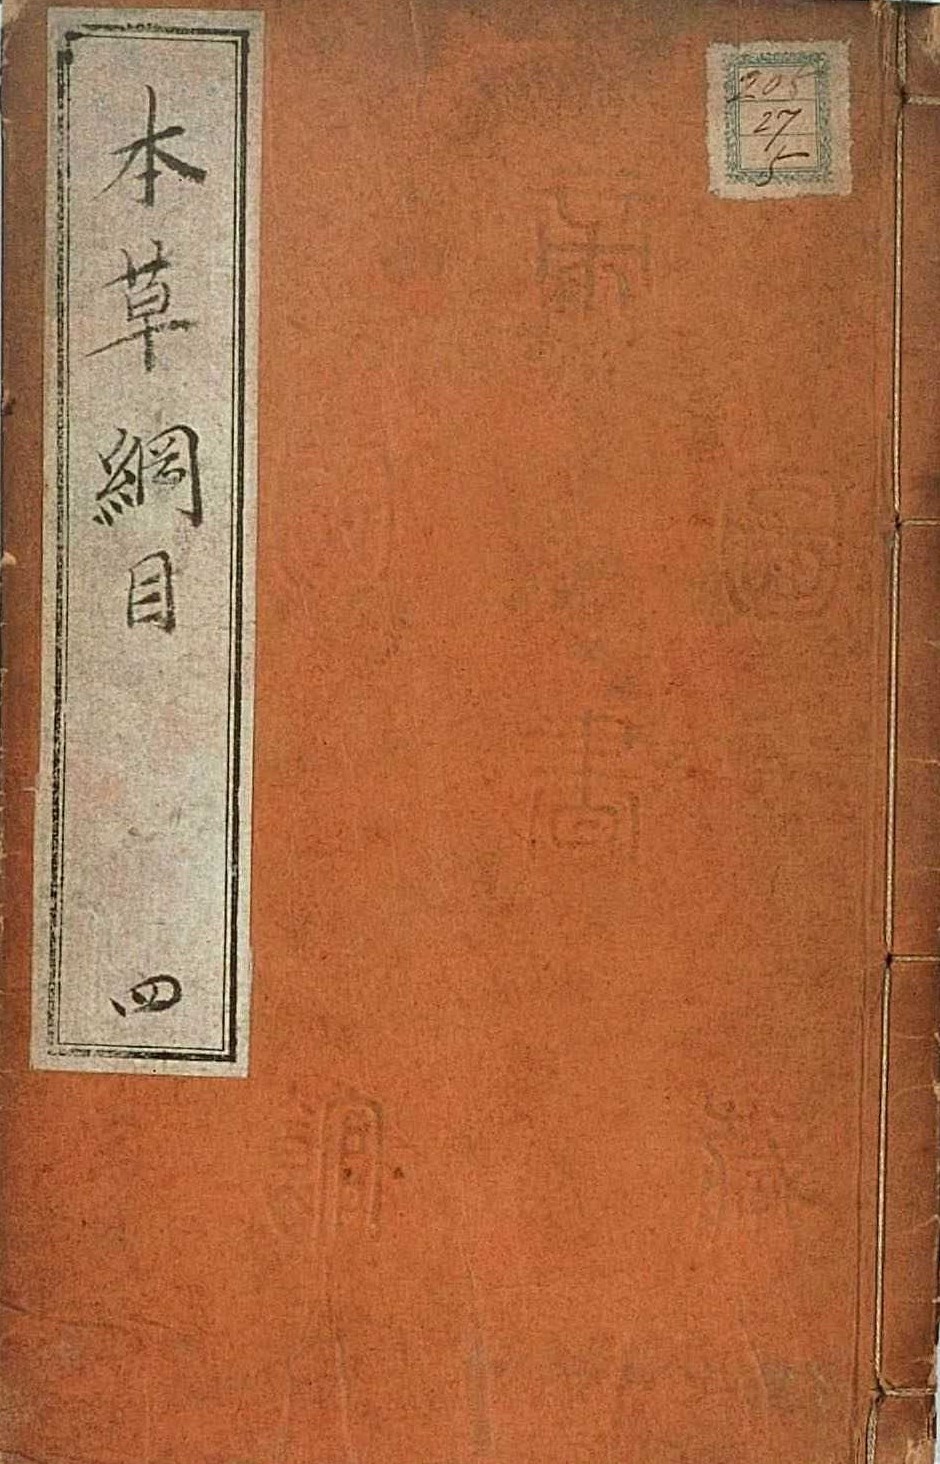 本草綱目
四
205
27
5